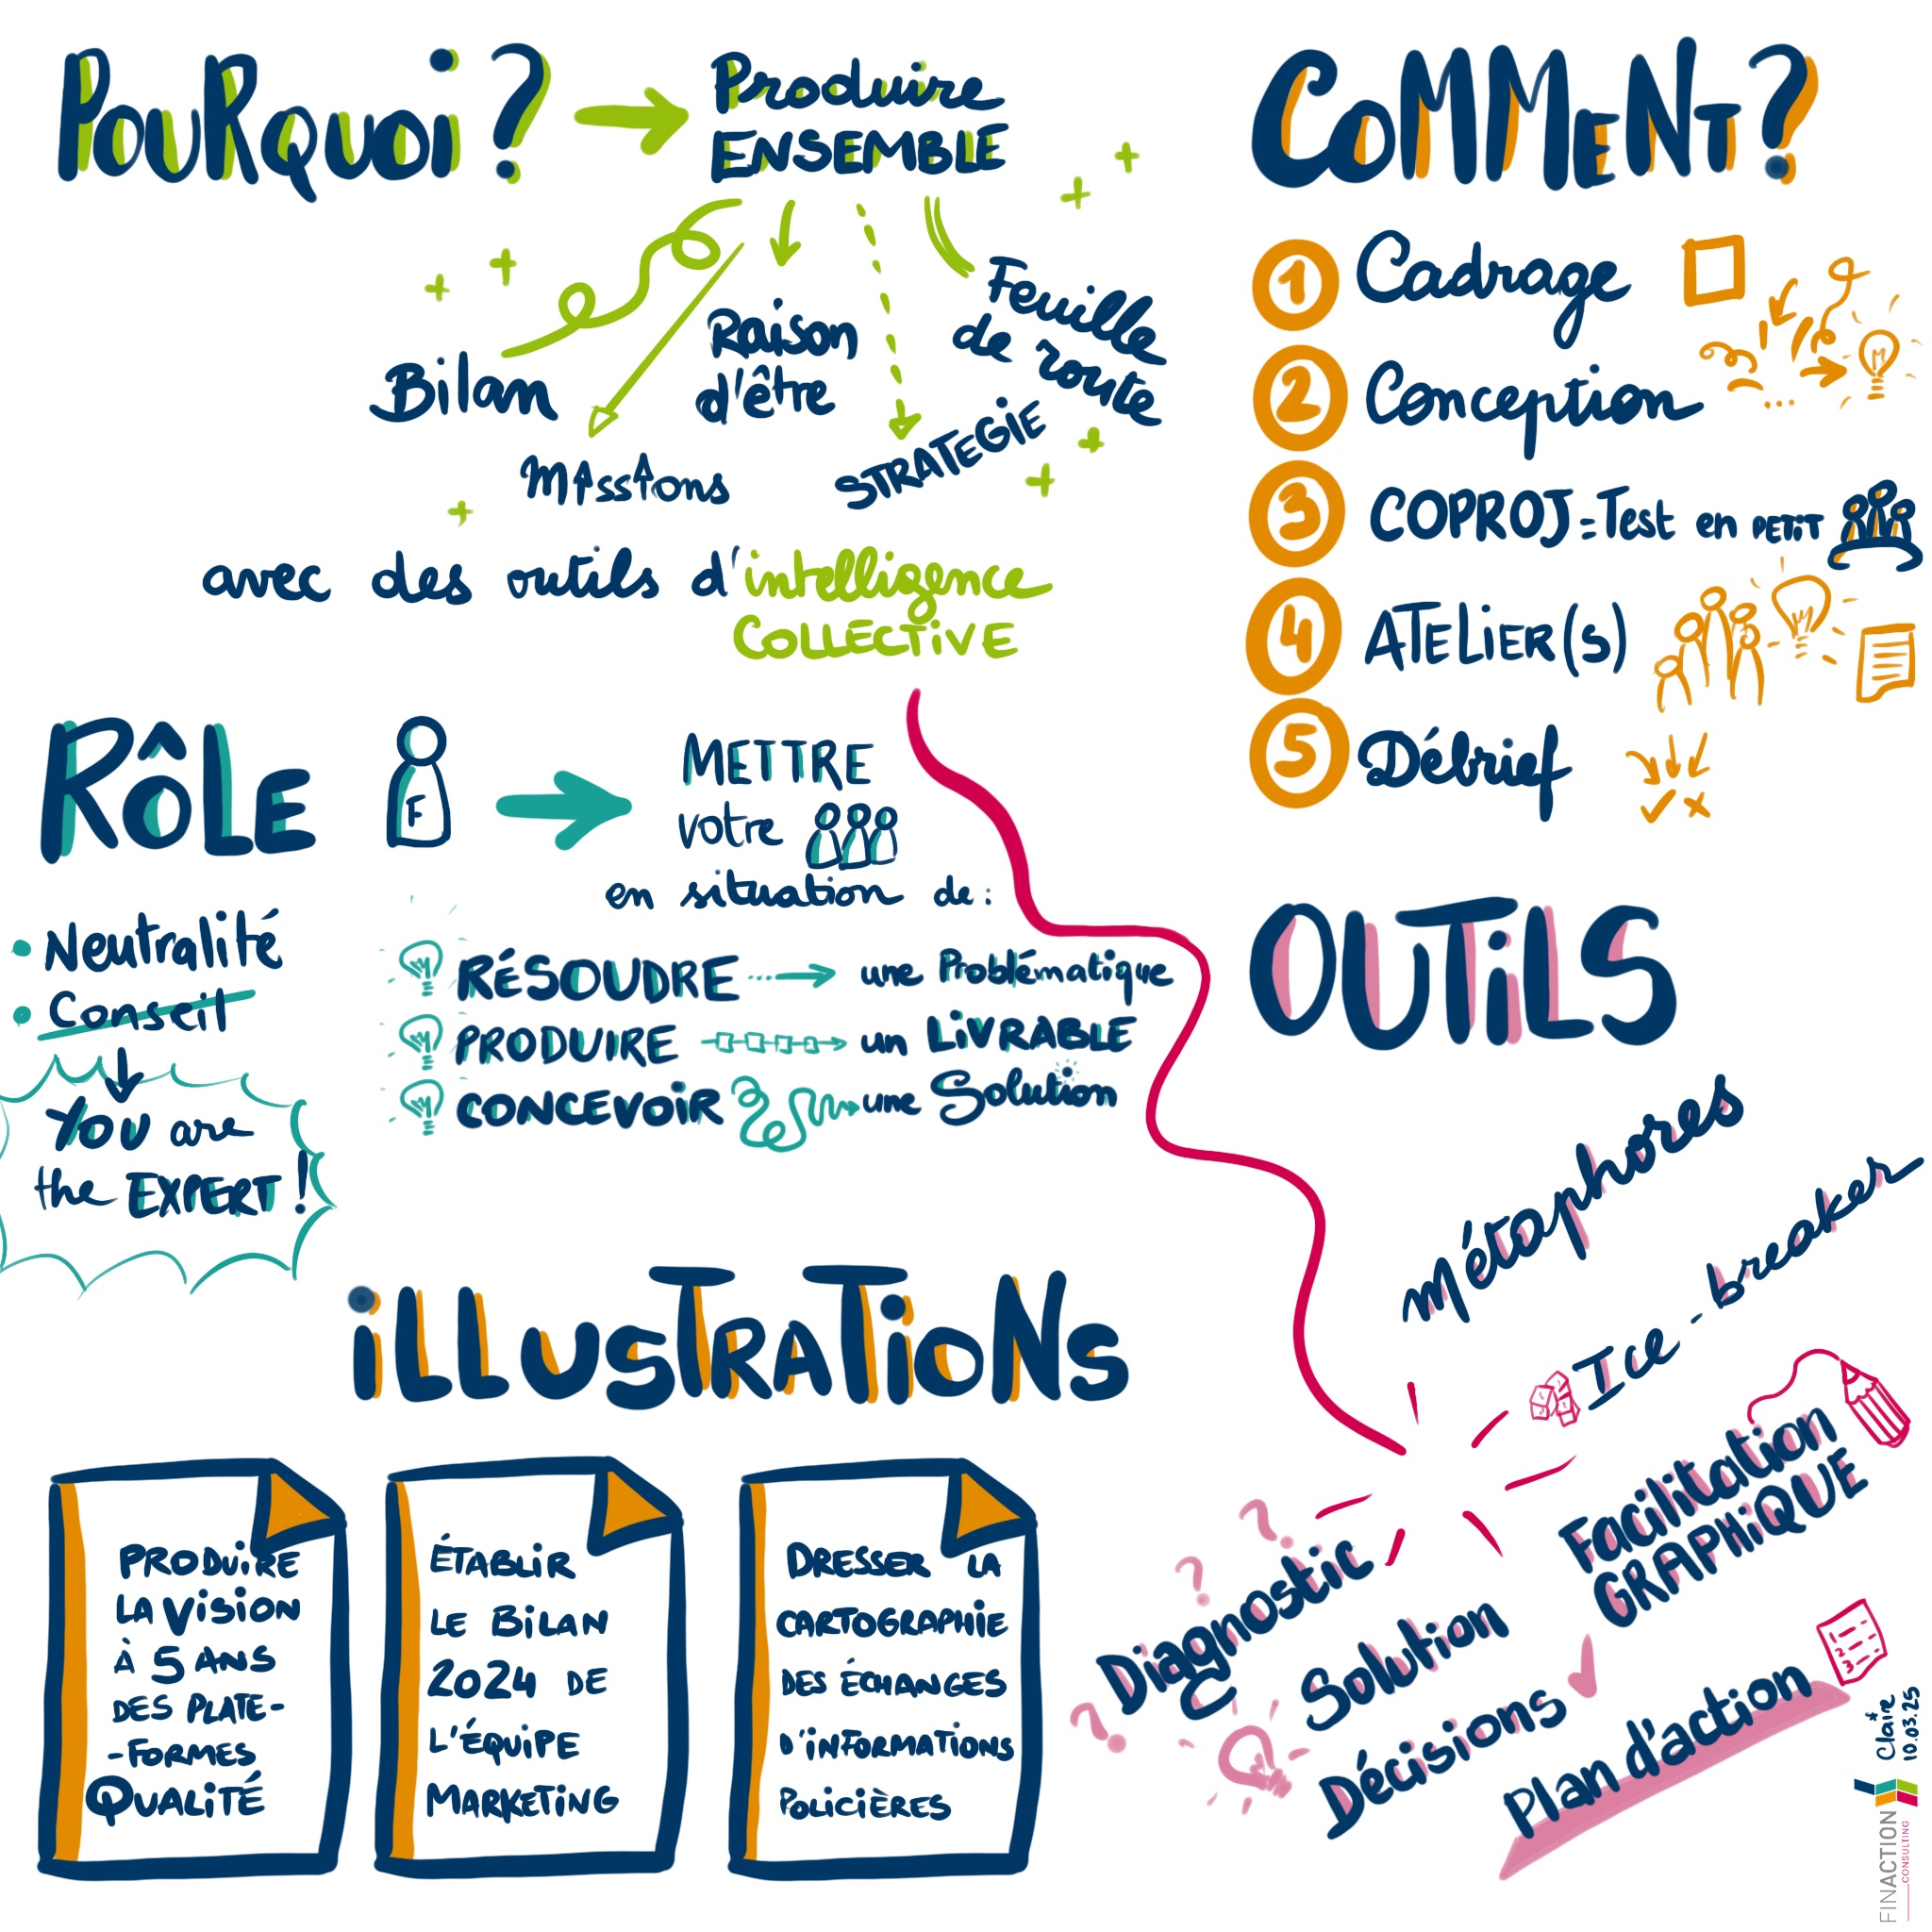 POURQUOI ?
Produire
ENSEMBLE
Bilan
Raison
d'être
Feuille
de route
Missions
STRATEGIE
avec des outils d'intelligence
COLLECTIVE
COMMENT ?
1 Cadrage
2 Conception
3 COPROJ = Test en PETIT
4 ATELIER(S)
5 Débrief
RÔLE
F
METTRE
votre
en situation de :
• Neutralité
• Conseil
YOU are
the EXPERT !
RÉSOUDRE une Problématique
PRODUIRE un LIVRABLE
CONCEVOIR une Solution
OUTILS
Métaphores
Ice-breaker
Facilitation
GRAPHIQUE
Diagnostic
Solution
Décisions
Plan d'action
1
2
3
ILLUSTRATIONS
PRODUIRE
LA VISION
À 5 ANS
DES PLATE-
-FORMES
QUALITÉ
ÉTABLIR
LE BILAN
2024 DE
L'ÉQUIPE
MARKETING
DRESSER LA
CARTOGRAPHIE
DES ÉCHANGES
D'INFORMATIONS
POLICIÈRES
Claire*
10.03.25
FINACTION
CONSULTING